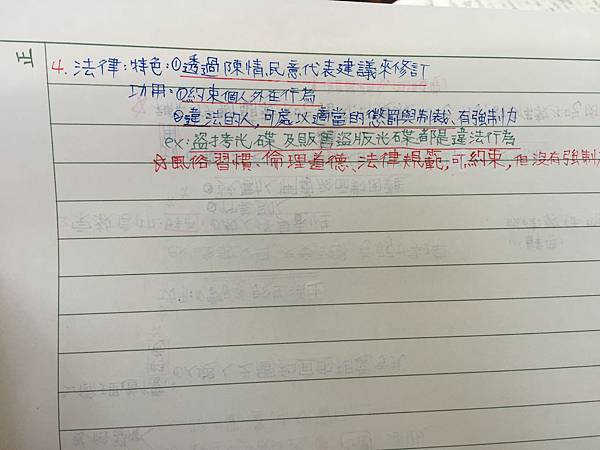 正
4. 法律：特色：①透過陳情民意代表建議來修訂
功用：①約束個人外在行為
②違法的人，可處以適當的懲罰與制裁，有強制力
ex：盜拷光碟及販售盜版光碟都是違法行為
☆風俗習慣、倫理道德、法律規範，可約束，但沒有強制